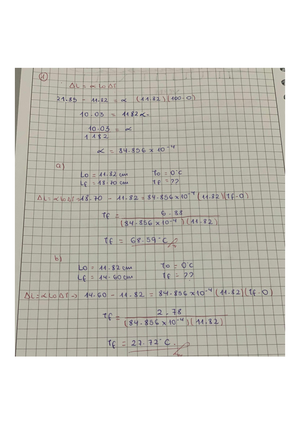 1
ΔL = α Lo ΔT
21.85 - 11.82 = α (11.82)(100-0)
10.03 = 1182 α
10.03 = α
1182
α = 84.856 x 10⁻⁴
a)
Lo = 11.82 cm To = 0°C
Lf = 18.70 cm Tf = ??
ΔL = α Lo ΔT 18.70 - 11.82 = 84.856 x 10⁻⁴ (11.82)(Tf-0)
Tf = 6.88
(84.856 x 10⁻⁴)(11.82)
Tf = 68.59°C
b)
Lo = 11.82 cm To = 0°C
Lf = 14.60 cm Tf = ??
ΔL = α Lo ΔT → 14.60 - 11.82 = 84.856 x 10⁻⁴ (11.82)(Tf-0)
Tf = 2.78
(84.856 x 10⁻⁴)(11.82)
Tf = 27.72°C